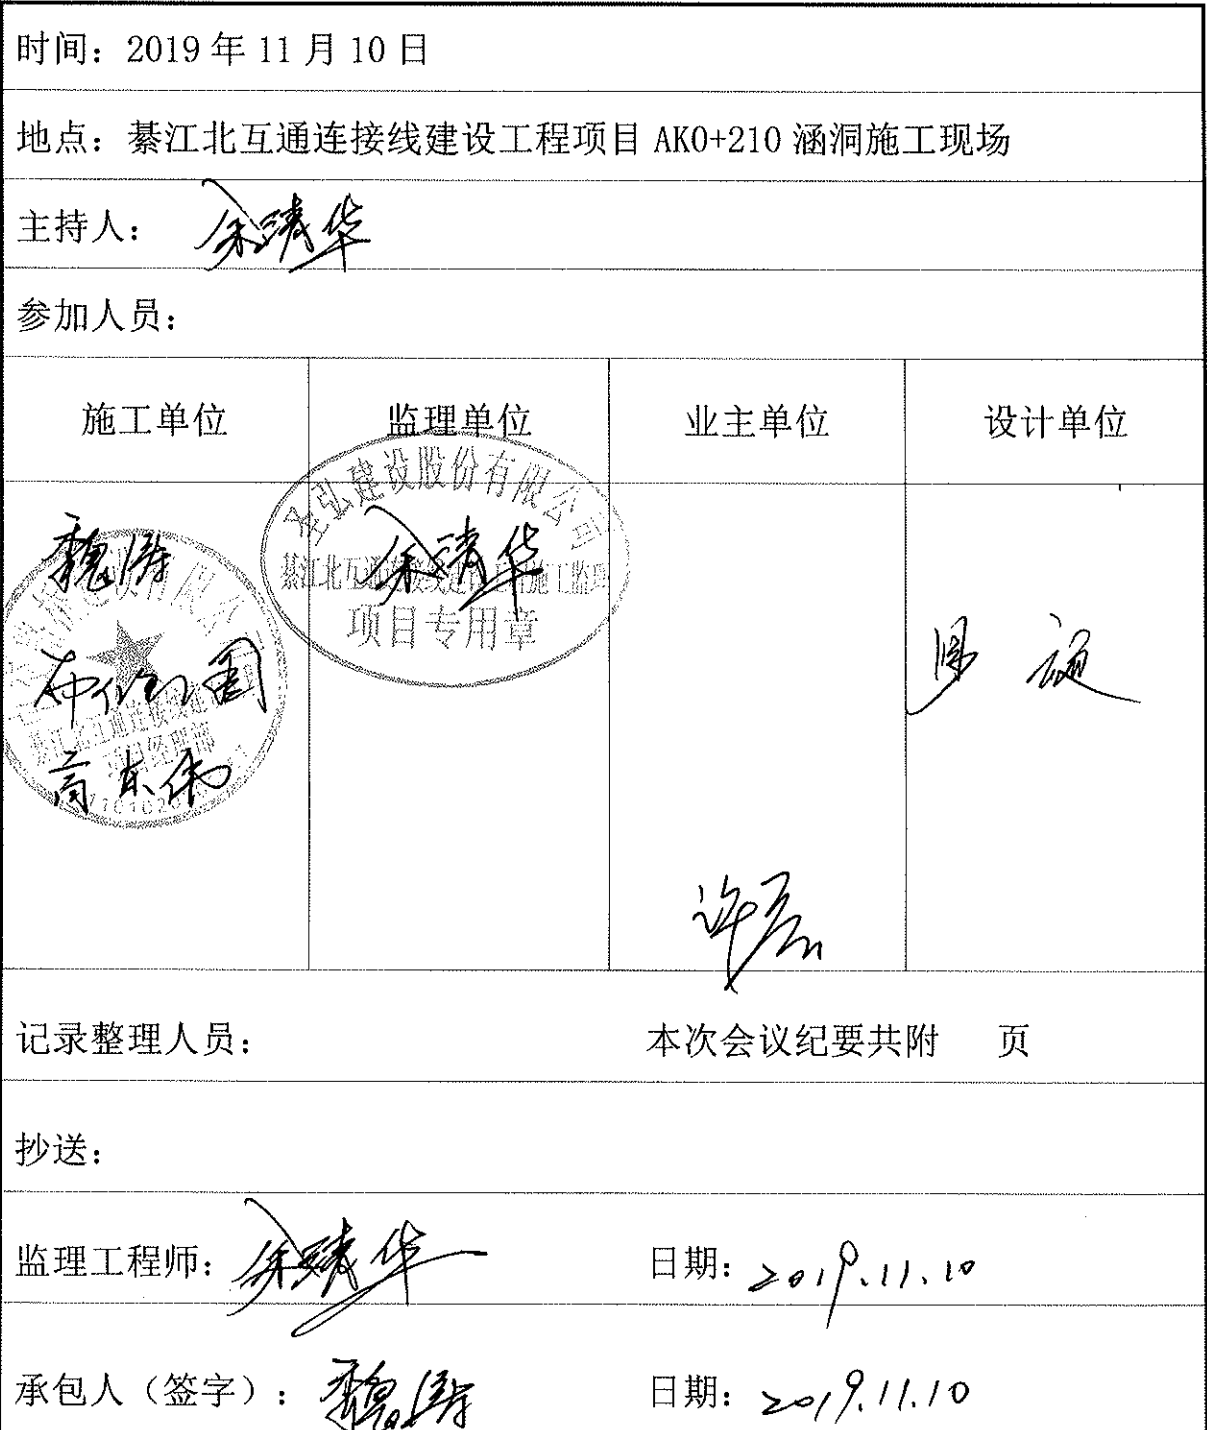 时间：2019 年 11 月 10 日
地点：綦江北互通连接线建设工程项目 AK0+210 涵洞施工现场
主持人：余靖华
参加人员：
施工单位 监理单位 业主单位 设计单位
圣弘建设股份有限公司
魏涛 余靖华
綦江北互通连接线建设工程施工监理
项目专用章
綦江北互通连接线
项目经理部
高东伟
记录整理人员： 本次会议纪要共附 页
抄送：
监理工程师：余靖华 日期：2019.11.10
承包人（签字）：魏涛 日期：2019.11.10